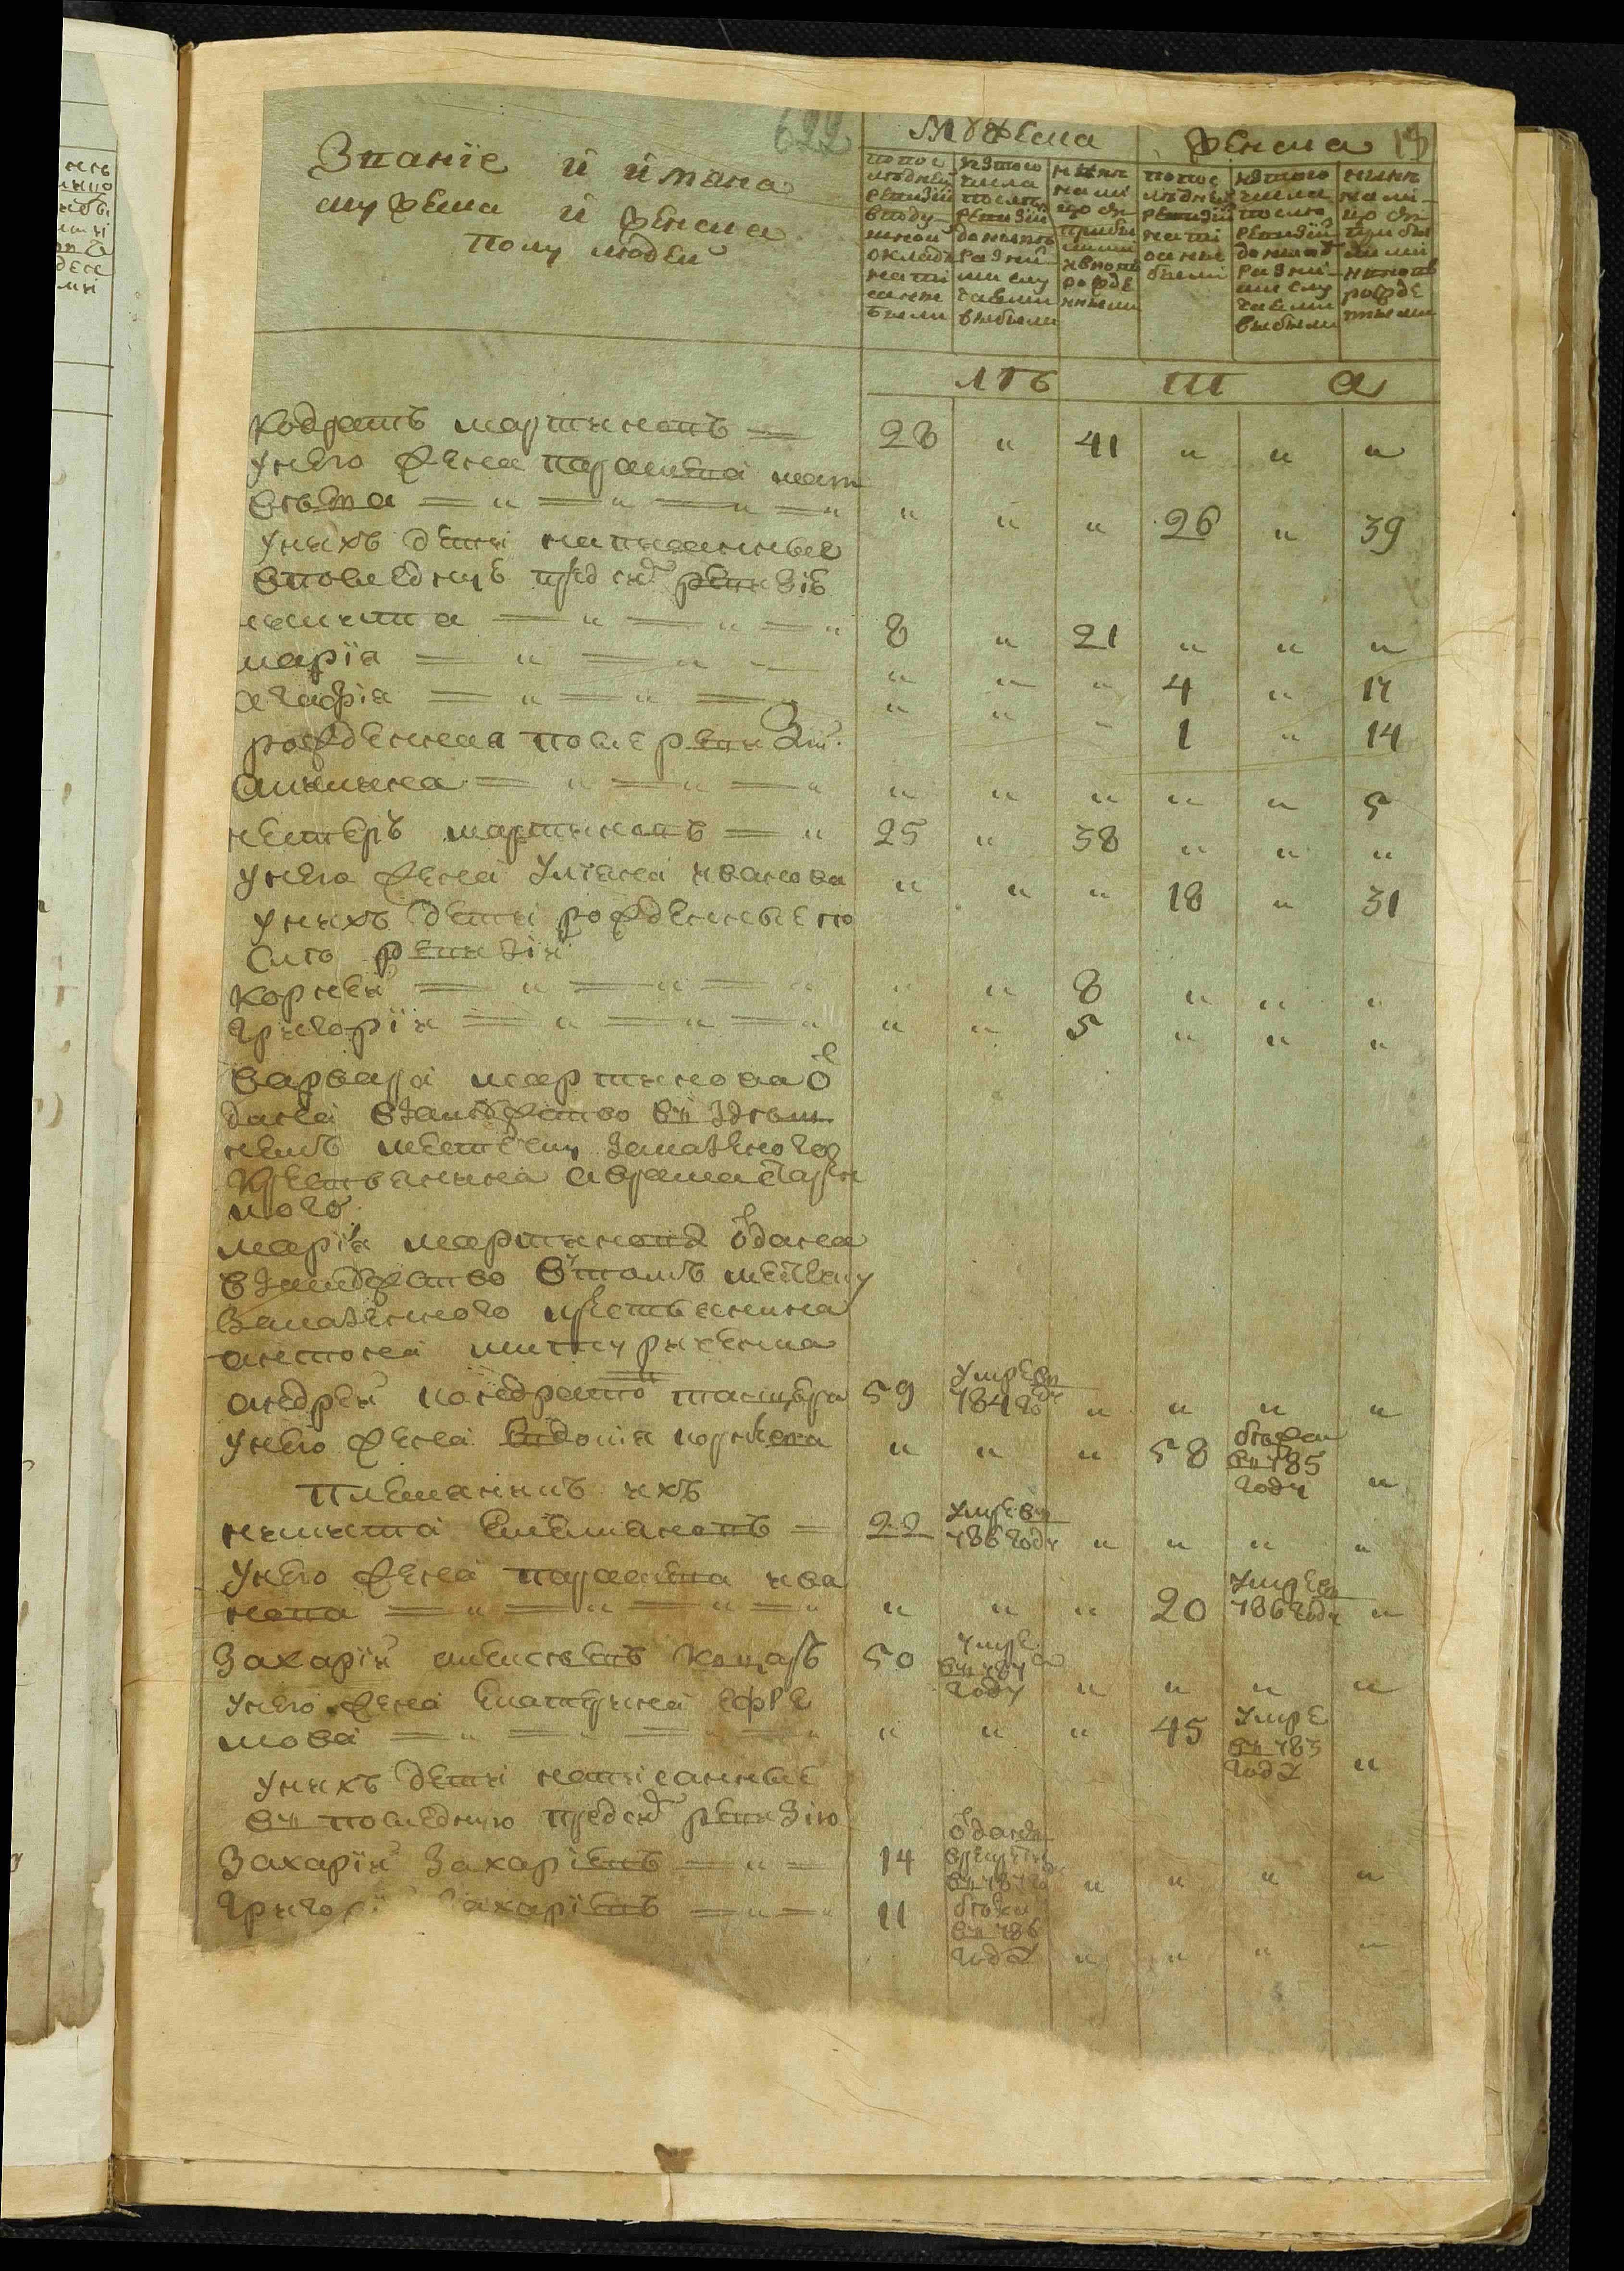 622
Званїе и имяна
мужеска и женска
полу людей
мужеска
женска
13
попос
ледней
ревизїи
вподу
шном
окладе
напи
саные
были
изтого
числа
послѣ
ревизїи
доныне
разны
ми слу
чаеми
выбыли
ныне
на ли
цо съ
прибы
лыми
ивновь
рожде
нными
попос
ледней
ревизїи
напи
саные
были
изтого
числа
после
ревизїи
доныне
разны
ми слу
чаеми
выбыли
ныне
на ли
цо съ
прибы
лыми
ивновь
рожде
нными
лѣ т а
Кодратъ мартиновъ 28 " 41 " " "
унего жена парасковиа мат
вѣева " " " 26 " 39
унихъ дети написанные
впоследнуь предсимъ ревизїе
никита 8 " 21 " " "
марїя " " " 4 " 17
агафїя " " " 1 " 14
рожденная после ревизїи
акилина " " " " " 5
нестеръ мартиновъ 25 " 38 " " "
унего жена улияна иванова " " " 18 " 31
унихъ дети рожденные по
сле ревизїи
корней " " 8 " " "
григорїй " " 5 " " "
варвара мартинова о
дана взамужество ви здеш
немъ местечку заказеного
крестьянина аврама
мого
марїя мартинова одана
взамужество втомъ местечку
заказенного крестьянина
антона
андрей кондратов 59 умре ви 784 году " " " "
унего жена евдокия корнеева " " " 58 бежа ви 785 годи "
племянникъ ихъ
никита емельяновъ 22 умре ви 786 году " " " "
унего жена парасковиа ива
нова " " " 20 умре ви 786 году "
Захарїй алексѣевъ 50 умре ви 787 году " " " "
унего жена екатерина ефре
мова " " " 45 умре ви 783 году "
унихъ дети написанные
ви последнюю предсимъ ревизїю
Захарїй Захарїевъ 14 одан врекруты ви 787 " " " "
Григо Захарїевъ 11 бежа ви 786 году " " " "